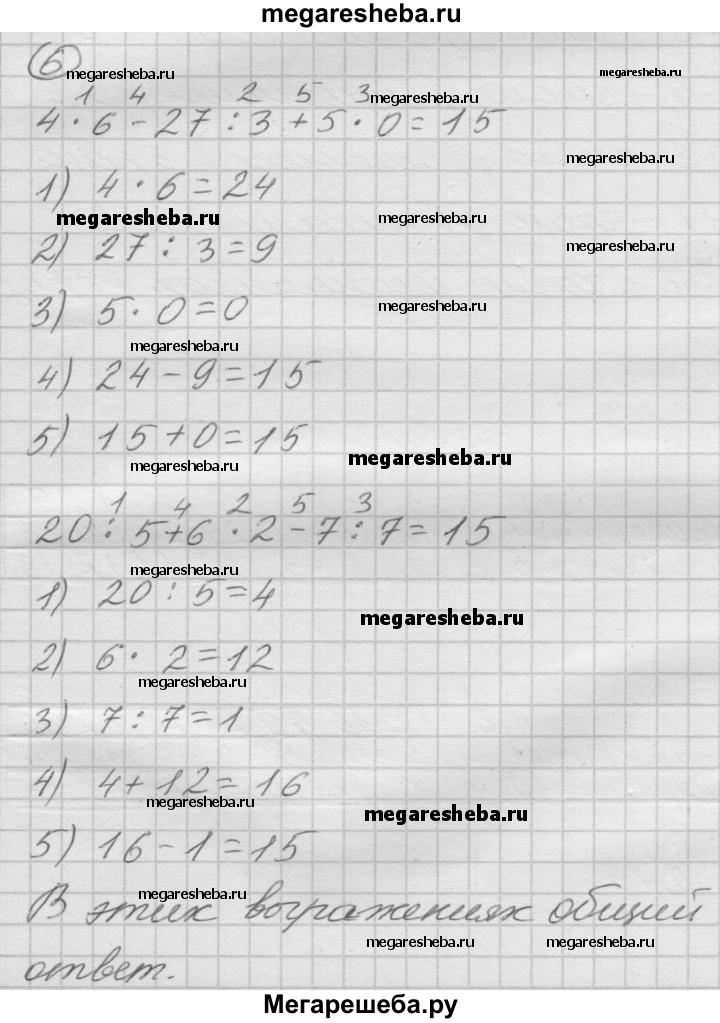 megaresheba.ru
6
megaresheba.ru megaresheba.ru
1 4 2 5 3 megaresheba.ru
4 · 6 - 27 : 3 + 5 · 0 = 15
megaresheba.ru
1) 4 · 6 = 24
megaresheba.ru megaresheba.ru
2) 27 : 3 = 9 megaresheba.ru
3) 5 · 0 = 0 megaresheba.ru
megaresheba.ru
4) 24 - 9 = 15
5) 15 + 0 = 15 megaresheba.ru
megaresheba.ru
1 4 2 5 3
20 : 5 + 6 · 2 - 7 : 7 = 15
megaresheba.ru
1) 20 : 5 = 4 megaresheba.ru
2) 6 · 2 = 12
megaresheba.ru
3) 7 : 7 = 1
4) 4 + 12 = 16
megaresheba.ru megaresheba.ru
5) 16 - 1 = 15
megaresheba.ru
В этих выражениях общий
megaresheba.ru megaresheba.ru
ответ.
Мегарешеба.ру